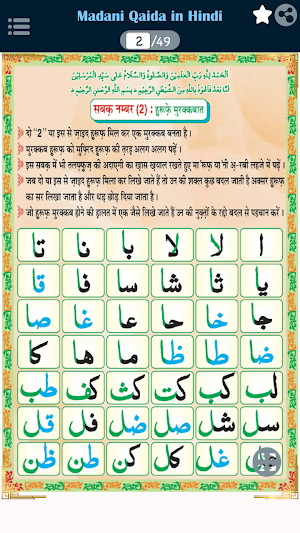 Madani Qaida in Hindi
2 /49
اَلْحَمْدُ لِلّٰهِ رَبِّ الْعٰلَمِیْنَ وَالصَّلٰوةُ وَالسَّلَامُ عَلٰی سَیِّدِ الْمُرْسَلِیْنَ
اَمَّا بَعْدُ فَاَعُوْذُ بِاللّٰهِ مِنَ الشَّیْطٰنِ الرَّجِیْمِ ؕ بِسْمِ اللّٰهِ الرَّحْمٰنِ الرَّحِیْمِ ؕ
सबक़ नम्बर (2) : हुरूफ़े मुरक्कबात
दो "2" या इस से ज़ाइद हुरूफ़ मिल कर एक मुरक्कब बनता है।
मुरक्कब हुरूफ़ को मुफ़्रिद हुरूफ़ की तरह अलग अलग पढ़ें।
इस सबक़ में भी तलफ़्फ़ुज़ की अदाएगी का ख़ास ख़याल रखते हुए मा'रूफ़ या'नी अ़-रबी लहजे में पढ़ें।
जब दो या इस से ज़ाइद हुरूफ़ मिला कर लिखे जाते हैं तो उन की शक्ल कुछ बदल जाती है अक्सर हुरूफ़
का सर लिखा जाता है और धड़ छोड़ दिया जाता है।
जो हुरूफ़ मुरक्कब होने की हालत में एक जैसे लिखे जाते हैं उन की नुक़्तों के रद्दो बदल से पहचान करें।
ا لا لا با نا تا
یا ثا شا سا فا قا
جا خا حا عا غا صا
ضا طا ظا ما ها کا
لب کب کت کث کف طب
سل شل صل ضل فل قل
غل کل کن طن ظن